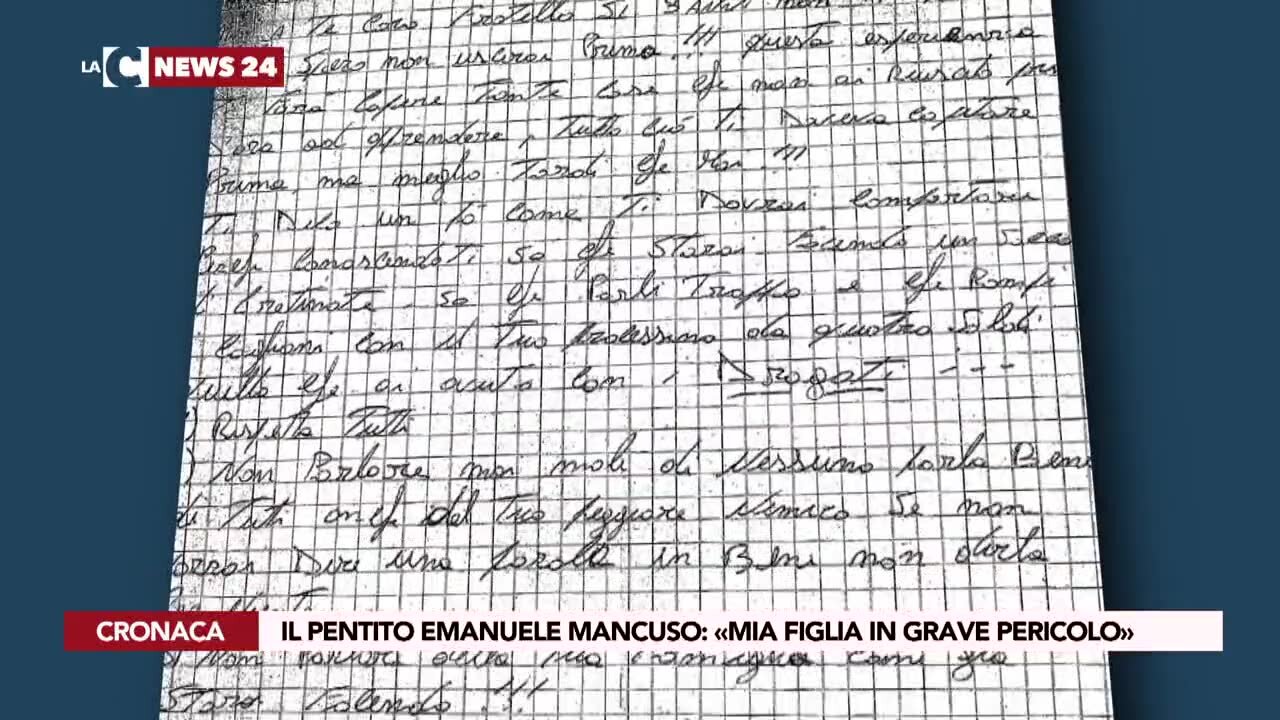 Ti Caro Fratello Si
LA C NEWS 24
Spero non uscirai Prima !!! questa esperienza
Farà Capire Tante Cose che non ai Riuscito
ad apprendere, Tutto ciò Ti Doveva capitare
Prima, ma meglio Tardi che Mai !!!
Ti Dico un pò come Ti Dovrai Comportare
Perche Conoscendoti So che Starai Facendo un
So che Parli Troppo e che Rompi
Coglioni con il Tuo da quattro Soldi
che ai avuto con i Drogati ---
) Rispetta Tutti
) Non Parlare mai male di Nessuno parla Bene
di Tutti anche del Tuo peggiore Nemico Se non
Dire una parola in Bene non dirla
CRONACA
IL PENTITO EMANUELE MANCUSO: «MIA FIGLIA IN GRAVE PERICOLO»
) Non della tua Famiglia come già
Stara Facendo !!!